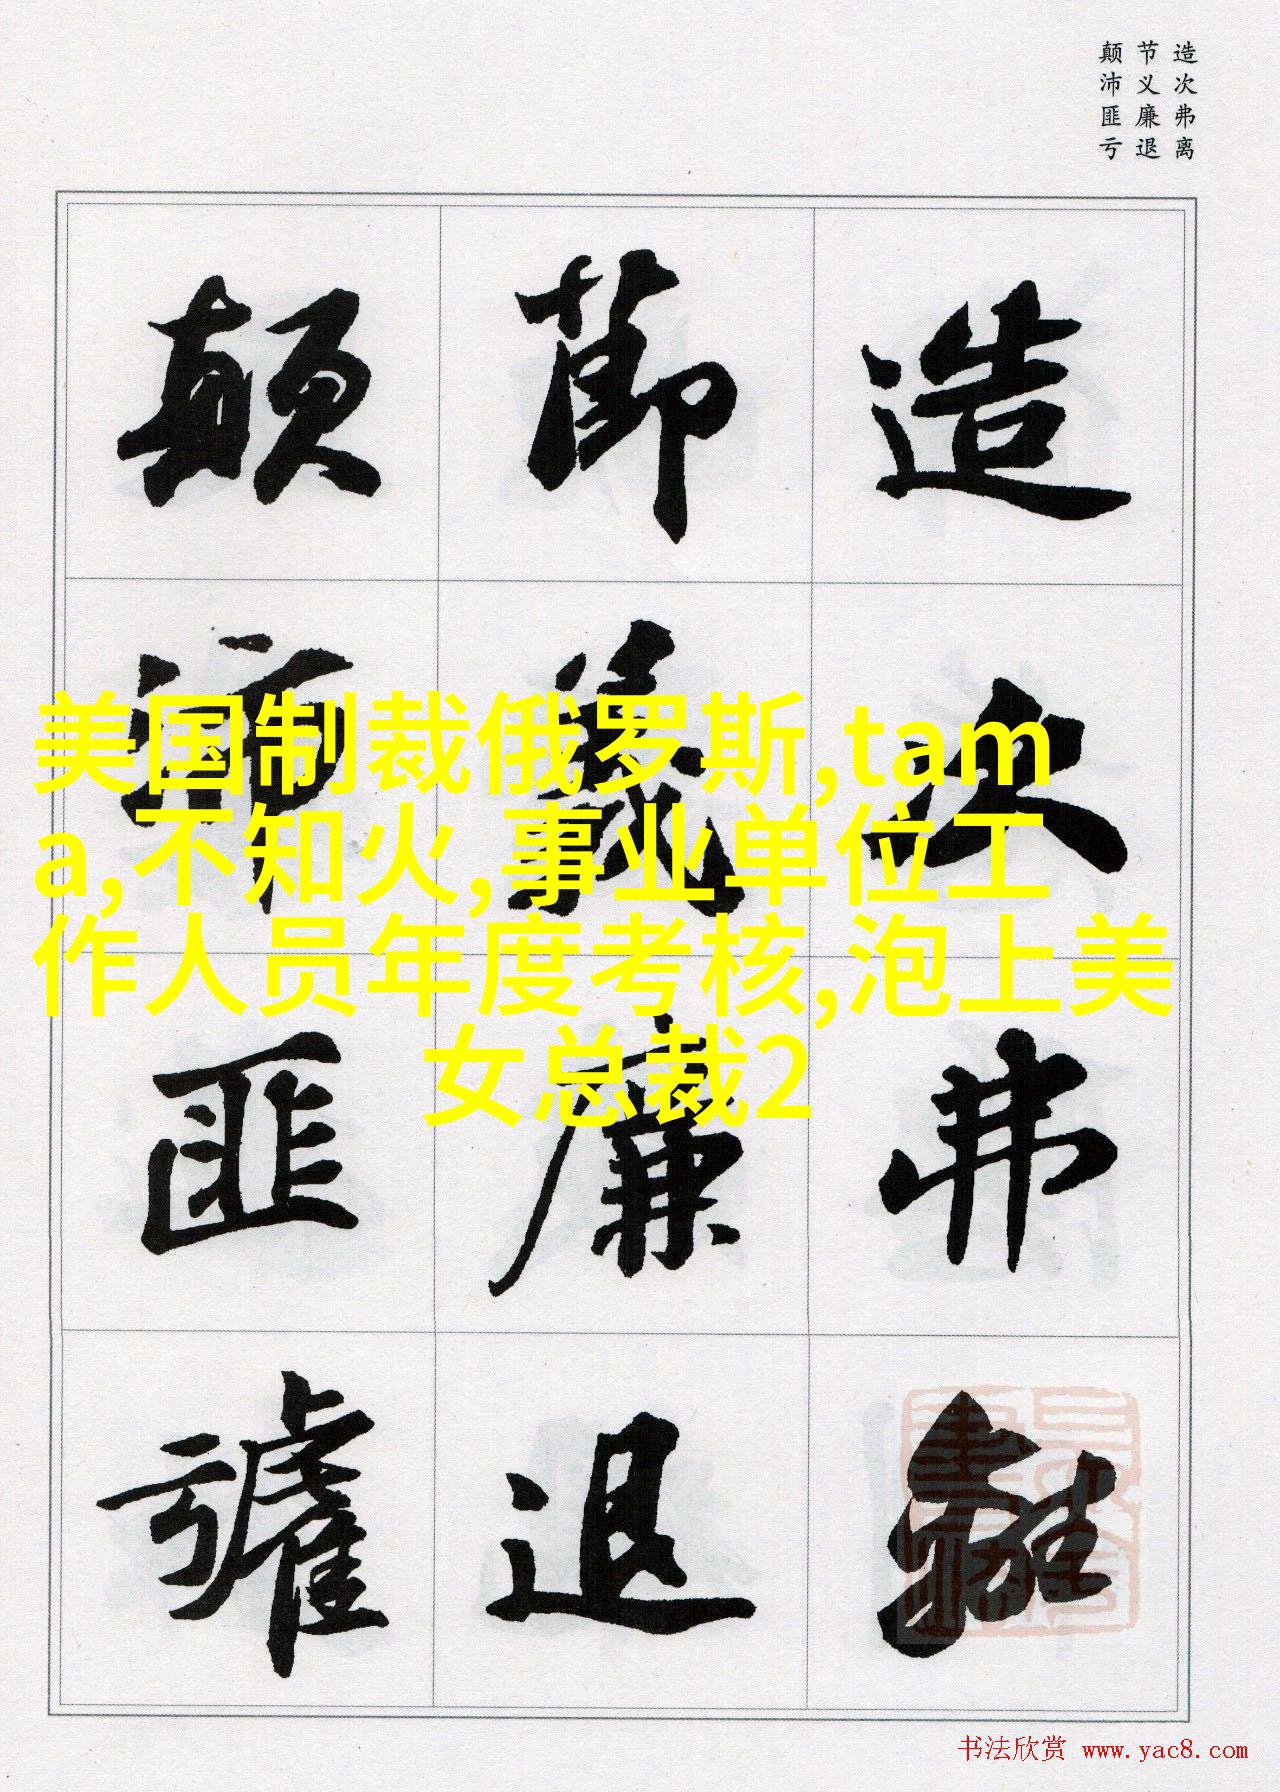 造次弗离
节义廉退
颠沛匪亏
造次弗離
節義廉退
顛沛匪虧
美国制裁俄罗斯,tam
a,不知火,事业单位工
作人员年度考核,泡上美
女总裁2
书法欣赏 www.yac8.com